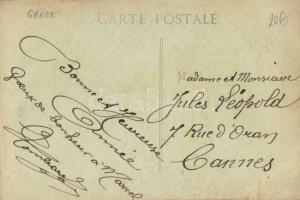 GRECE
CARTE POSTALE
20€
Bonne et Heureuse
Année
de bonheur à Marcel
Madame et Monsieur
Jules Léopold
7 Rue d'Oran
Cannes